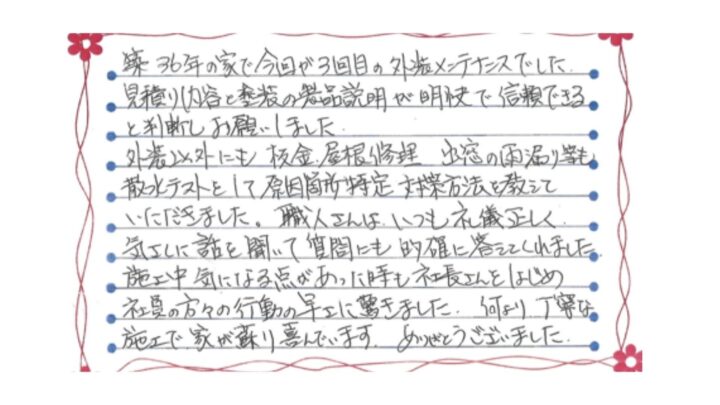 築36年の家で今回が3回目の外装メンテナンスでした.
見積り内容と塗装の製品説明が明快で信頼できる
と判断しお願いしました.
外装以外にも 板金.屋根修理 出窓の雨漏り等も
散水テストをして原因箇所特定 対策方法を教えて
いただきました。職人さんは いつも礼儀正しく.
気さくに話を聞いて質問にも的確に答えてくれました.
施工中気になる点があった時も社長さんをはじめ
社員の方々の行動の早さに驚きました. 何より丁寧な
施工で家が蘇り喜んでいます. ありがとうございました.